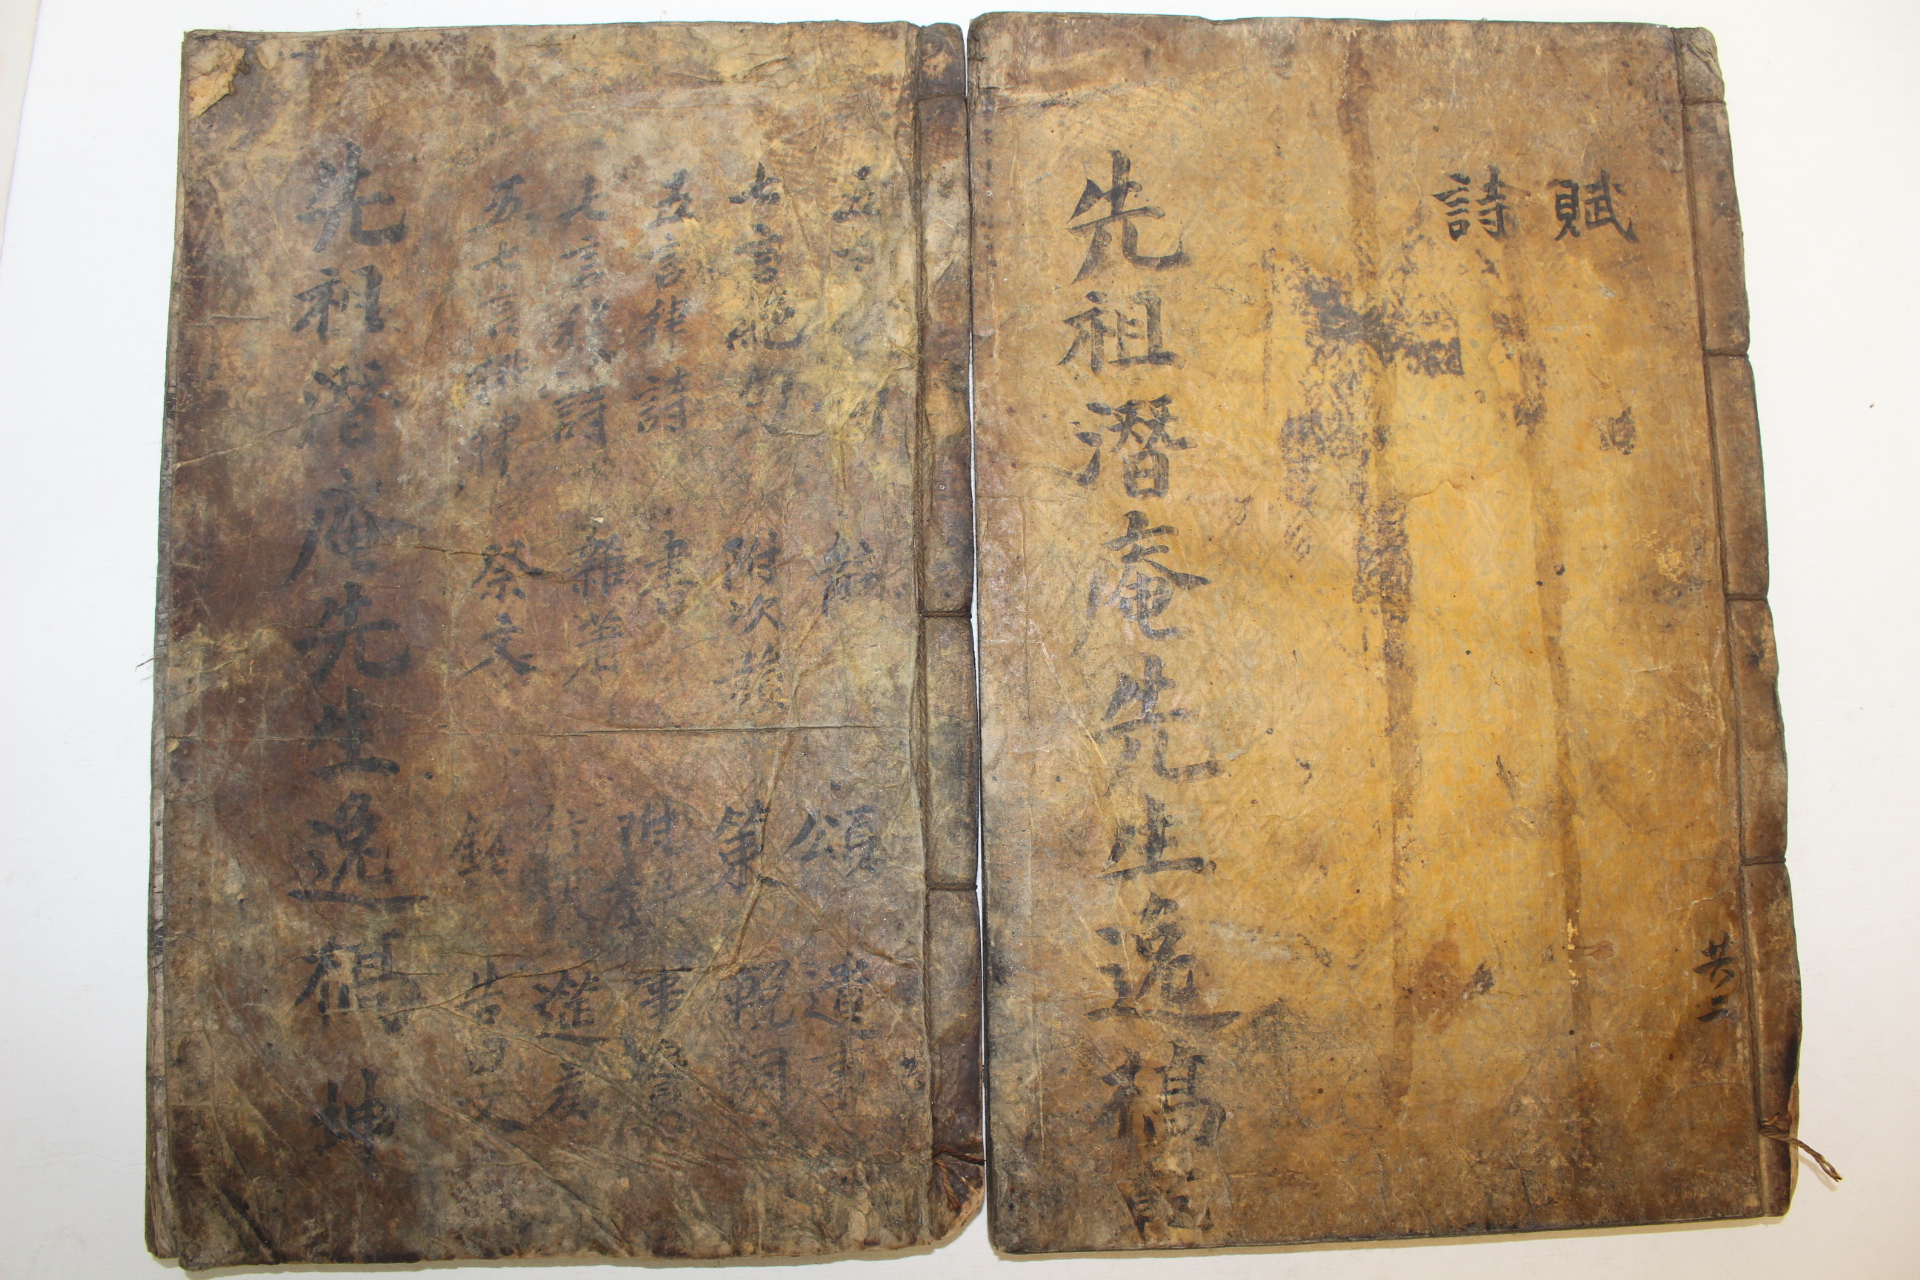 賦
詩
先祖潛庵先生逸稿乾
共二
五言
辭
頌
遺事
七言絶句
附次韻
策
輓詞
五言律詩
書
附
事
七言律詩
雜著
進
五七言排律
祭文
銘
告
先祖潛庵先生逸稿 坤